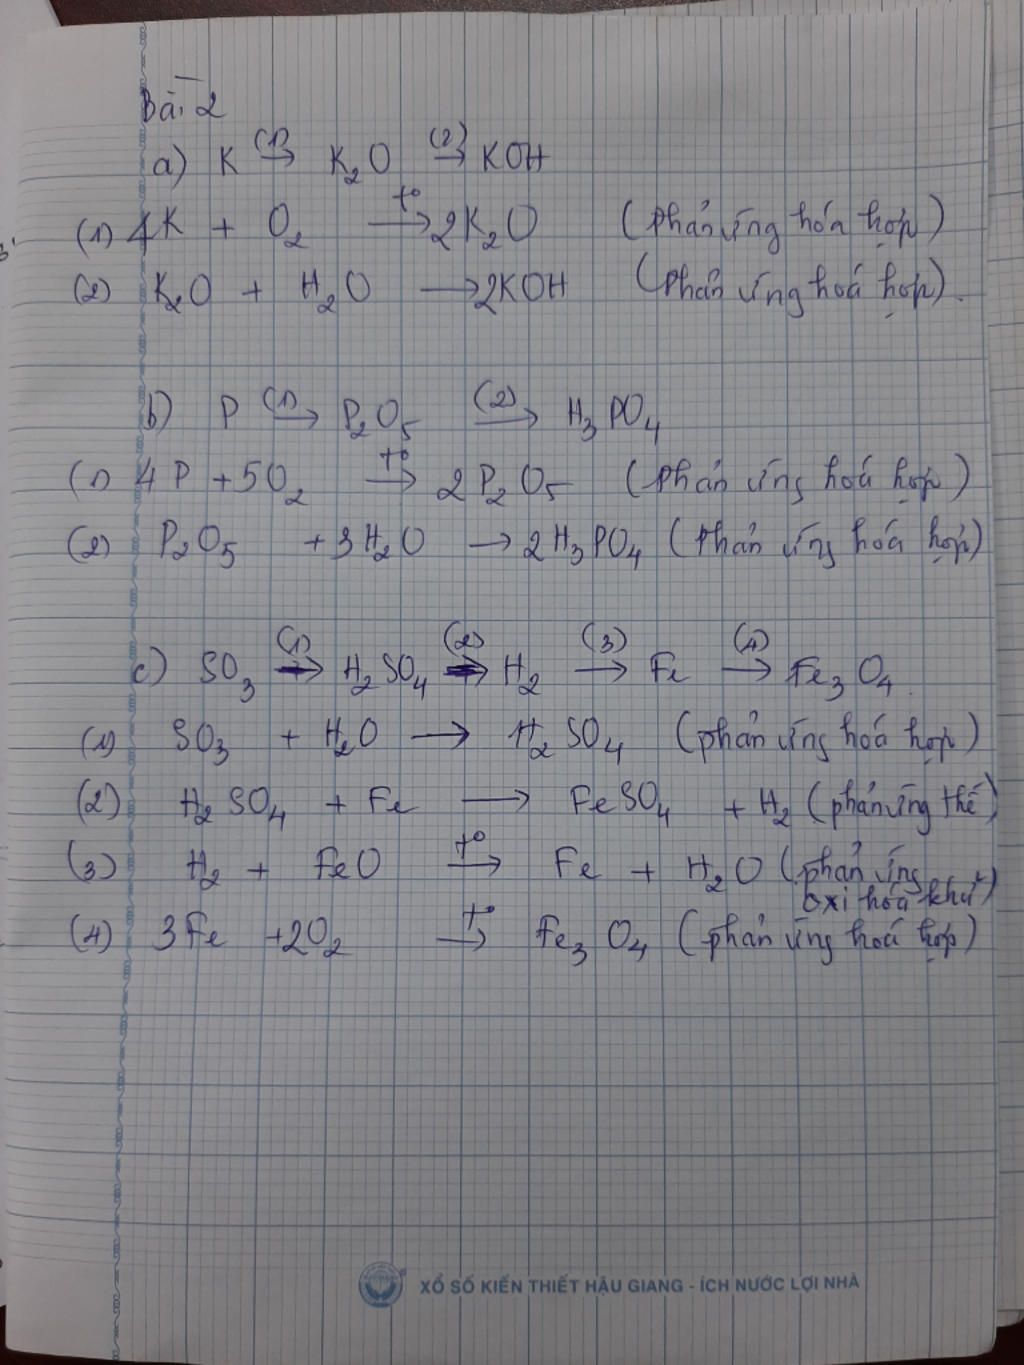 Bài 2
a) K (1)→ K₂O (2)→ KOH
(1) 4K + O₂ t°→ 2K₂O (phản ứng hóa hợp)
(2) K₂O + H₂O → 2KOH (phản ứng hoá hợp).
b) P (1)→ P₂O₅ (2)→ H₃PO₄
(1) 4P + 5O₂ t°→ 2P₂O₅ (phản ứng hoá hợp)
(2) P₂O₅ + 3H₂O → 2H₃PO₄ (phản ứng hóa hợp)
c) SO₃ (1)→ H₂SO₄ (2)→ H₂ (3)→ Fe (4)→ Fe₃O₄.
(1) SO₃ + H₂O → H₂SO₄ (phản ứng hoá hợp)
(2) H₂SO₄ + Fe → FeSO₄ + H₂ (phản ứng thế)
(3) H₂ + FeO t°→ Fe + H₂O (phản ứng
oxi hóa khử)
(4) 3Fe + 2O₂ t°→ Fe₃O₄ (phản ứng hoá hợp)
XỔ SỐ KIẾN THIẾT HẬU GIANG - ÍCH NƯỚC LỢI NHÀ